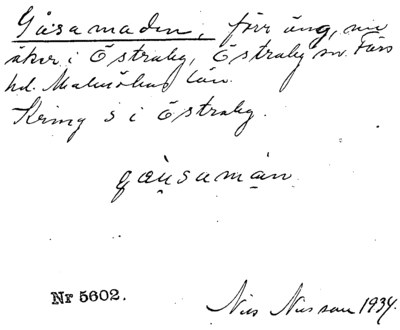 Gåsamaden, förr äng, nu
åker i Östraby, Östraby sn. Färs
hd. Malmöhus län.
Kring 5 i Östraby.
gåu̯samàn
Nr 5602.
Nils Nilsson 1934.